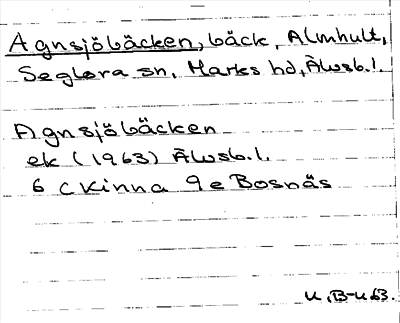 Agnsjöbäcken, bäck, Almhult,
Seglora sn, Marks hd, Älvsb.l.
Agnsjöbäcken
ek (1963) Älvsb.l.
6 C Kinna 9e Bosnäs
U.B-U 63.